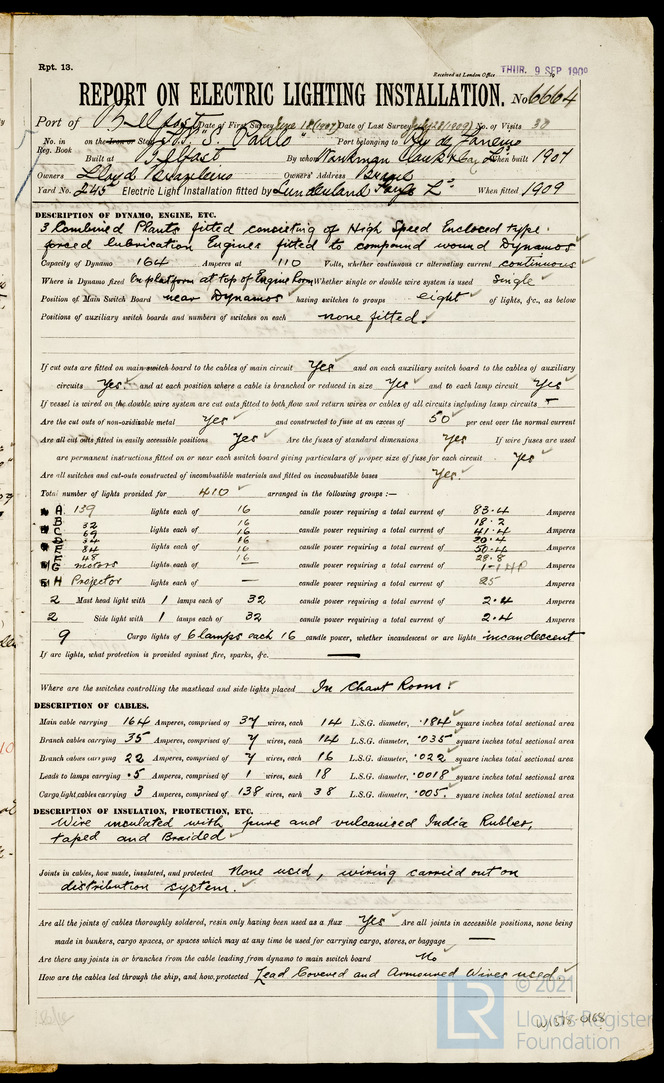 Rpt. 13.
Received at London Office THUR. 9 SEP 1909
REPORT ON ELECTRIC LIGHTING INSTALLATION. No 6664
Port of Belfast Date of First Survey June 18 (1907) Date of Last Survey July 28 (1909) No. of Visits 38
No. in Reg. Book on the Iron or Steel S.S. "S. Paulo" Port belonging to Rio de Janeiro
Built at Belfast By whom Workman Clark & Co. Ld. When built 1907
Owners Lloyd Brazileiro Owners' Address Brazil
Yard No. 245 Electric Light Installation fitted by Sunderland Forge Ld. When fitted 1909
DESCRIPTION OF DYNAMO, ENGINE, ETC.
3 Combined Plants fitted consisting of High Speed Enclosed type
forced lubrication Engines fitted to compound wound Dynamos
Capacity of Dynamo 164 Amperes at 110 Volts, whether continuous or alternating current continuous
Where is Dynamo fixed On platform at top of Engine Room Whether single or double wire system is used Single
Position of Main Switch Board near Dynamos having switches to groups eight of lights, &c., as below
Positions of auxiliary switch boards and numbers of switches on each none fitted.
If cut outs are fitted on main switch board to the cables of main circuit Yes and on each auxiliary switch board to the cables of auxiliary
circuits Yes and at each position where a cable is branched or reduced in size Yes and to each lamp circuit Yes
If vessel is wired on the double wire system are cut outs fitted to both flow and return wires or cables of all circuits including lamp circuits –
Are the cut outs of non-oxidizable metal Yes and constructed to fuse at an excess of 50 per cent over the normal current
Are all cut outs fitted in easily accessible positions Yes Are the fuses of standard dimensions Yes If wire fuses are used
are permanent instructions fitted on or near each switch board giving particulars of proper size of fuse for each circuit Yes
Are all switches and cut-outs constructed of incombustible materials and fitted on incombustible bases Yes.
Total number of lights provided for 410 arranged in the following groups :—
A 139 lights each of 16 candle power requiring a total current of 83.4 Amperes
B 32 16 18.2
C 69 lights each of 16 candle power requiring a total current of 41.4 Amperes
D 34 16 20.4
E 84 lights each of 16 candle power requiring a total current of 50.4 Amperes
F 48 16 28.8
G motors lights each of — candle power requiring a total current of Amperes
H Projector lights each of — candle power requiring a total current of 25 Amperes
2 Mast head light with 1 lamps each of 32 candle power requiring a total current of 2.4 Amperes
2 Side light with 1 lamps each of 32 candle power requiring a total current of 2.4 Amperes
9 Cargo lights of 6 lamps each 16 candle power, whether incandescent or arc lights incandescent
If arc lights, what protection is provided against fire, sparks, &c. —
Where are the switches controlling the masthead and side lights placed In Chart Room.
DESCRIPTION OF CABLES.
Main cable carrying 164 Amperes, comprised of 37 wires, each 14 L.S.G. diameter, .184 square inches total sectional area
Branch cables carrying 35 Amperes, comprised of 7 wires, each 14 L.S.G. diameter, .035 square inches total sectional area
Branch cables carrying 22 Amperes, comprised of 7 wires, each 16 L.S.G. diameter, .022 square inches total sectional area
Leads to lamps carrying .5 Amperes, comprised of 1 wires, each 18 L.S.G. diameter, .0018 square inches total sectional area
Cargo light cables carrying 3 Amperes, comprised of 138 wires, each 38 L.S.G. diameter, .005 square inches total sectional area
DESCRIPTION OF INSULATION, PROTECTION, ETC.
Wire insulated with pure and vulcanised India Rubber,
taped and Braided
Joints in cables, how made, insulated, and protected None used, wiring carried out on
distribution system.
Are all the joints of cables thoroughly soldered, resin only having been used as a flux Yes Are all joints in accessible positions, none being
made in bunkers, cargo spaces, or spaces which may at any time be used for carrying cargo, stores, or baggage —
Are there any joints in or branches from the cable leading from dynamo to main switch board No
How are the cables led through the ship, and how protected Lead Covered and Armoured Wires used
© 2021
LR
Lloyd's Register
Foundation
W1378-0168